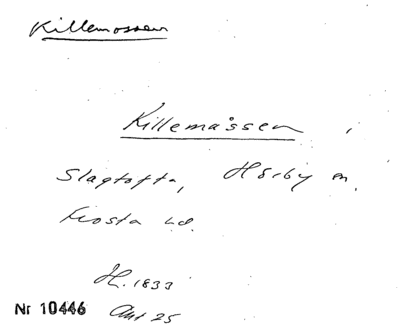 Killemossen
Killemåssen,
Slagtofta, Hörby sn.
Frosta hd.
H. 1833
Nr 10446 Akt 25